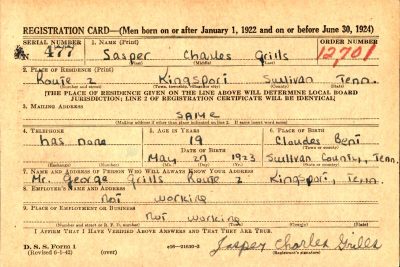 REGISTRATION CARD—(Men born on or after January 1, 1922 and on or before June 30, 1924)
SERIAL NUMBER 1. NAME (Print) ORDER NUMBER
N 477 Jasper Charles Grills 12,701
(First) (Middle) (Last)
2. PLACE OF RESIDENCE (Print)
Route 2 Kingsport Sullivan Tenn.
(Number and street) (Town, township, village, or city) (County) (State)
[THE PLACE OF RESIDENCE GIVEN ON THE LINE ABOVE WILL DETERMINE LOCAL BOARD
JURISDICTION; LINE 2 OF REGISTRATION CERTIFICATE WILL BE IDENTICAL]
3. MAILING ADDRESS
SAME
[Mailing address if other than place indicated on line 2. If same insert word same]
4. TELEPHONE 5. AGE IN YEARS 6. PLACE OF BIRTH
has none 19 Cloudes Bent
DATE OF BIRTH (Town or county)
May 27 1923 Sullivan County, Tenn.
(Exchange) (Number) (Mo.) (Day) (Yr.) (State or country)
7. NAME AND ADDRESS OF PERSON WHO WILL ALWAYS KNOW YOUR ADDRESS
Mr. George Grills Route 2 Kingsport, Tenn.
8. EMPLOYER'S NAME AND ADDRESS
not working
9. PLACE OF EMPLOYMENT OR BUSINESS
not working
(Number and street or R. F. D. number) (Town) (County) (State)
I AFFIRM THAT I HAVE VERIFIED ABOVE ANSWERS AND THAT THEY ARE TRUE.
D. S. S. Form 1
(Revised 6-1-42) (over) Jasper Charles Grills
(Registrant's signature)